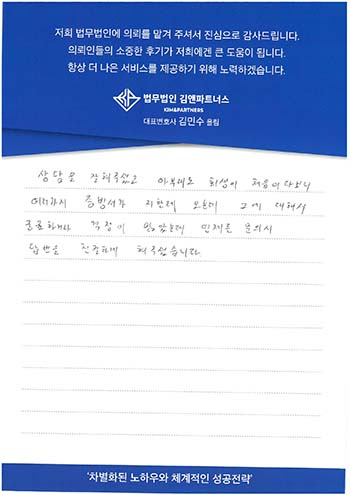 저희 법무법인에 의뢰를 맡겨 주셔서 진심으로 감사드립니다.
의뢰인들의 소중한 후기가 저희에겐 큰 도움이 됩니다.
항상 더 나은 서비스를 제공하기 위해 노력하겠습니다.
법무법인 김앤파트너스
KIM&PARTNERS
대표변호사 김민수 올림
상담을 잘해주셨고 아무래도 회생이 처음이다보니
증빙서가 그에 대해서
걱정이 많았는데 문의시
답변을 친절하게 해주셨습니다.
'차별화된 노하우와 체계적인 성공전략'